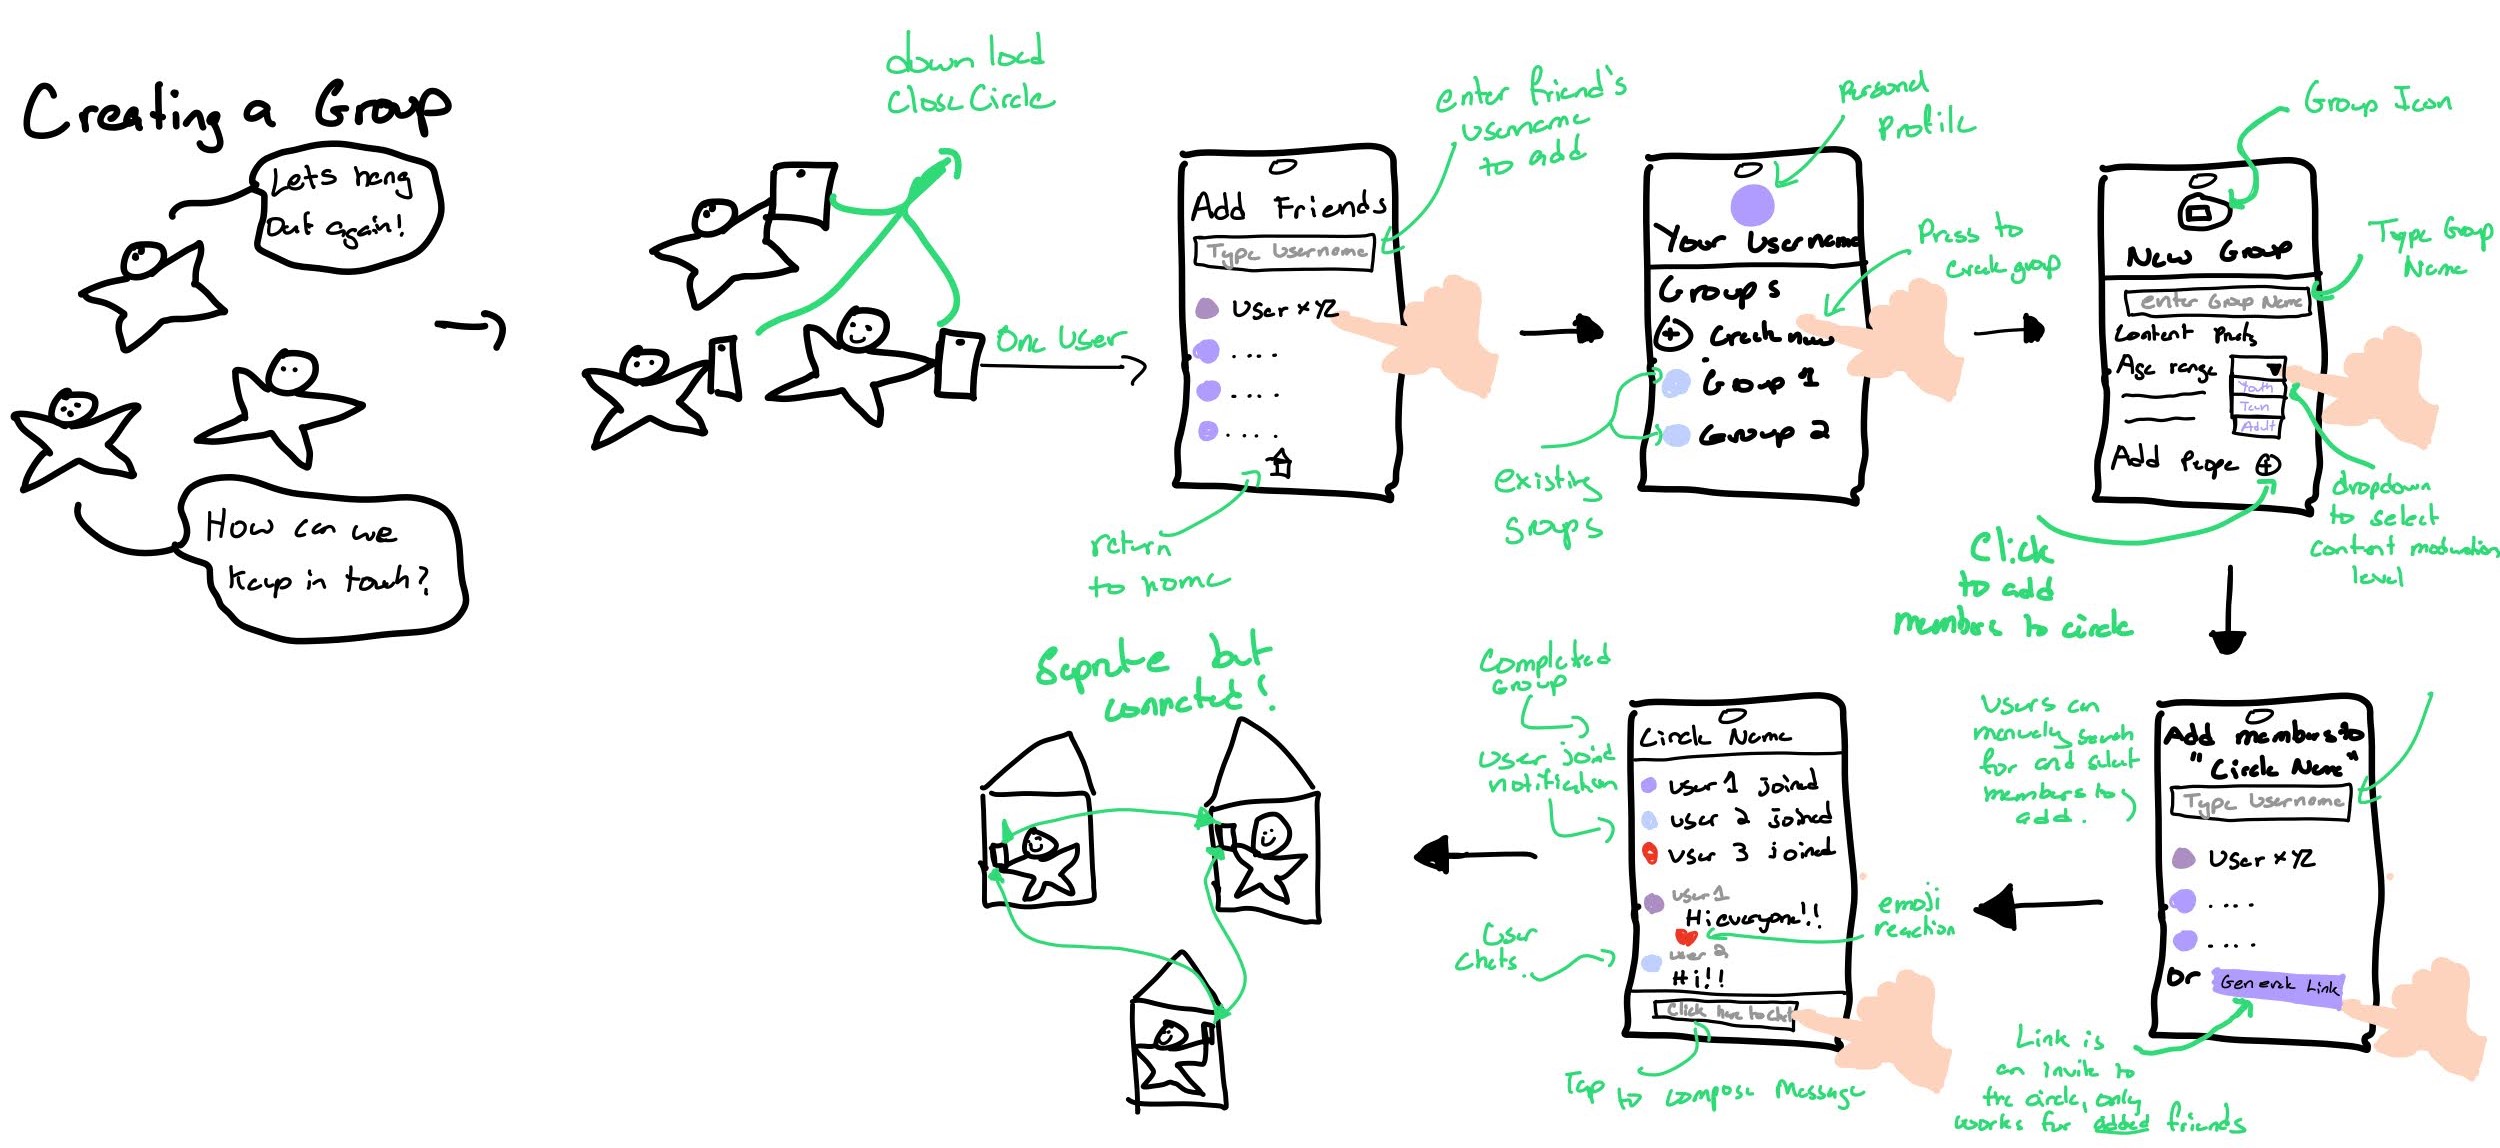 Creating a Group
Let's hang
Out again!
How can we
keep in touch?
download
Close Circle
One User
Add Friends
Type Username
User xYZ
....
....
....
enter friend's
username
to add
return
to home
Personal
Profile
Your Username
Groups
+ Create new
Group 1
Group 2
Press to
Create group
existing
groups
Group Icon
New Group
enter Group Name
Type Group
Name
Content Prefs
Age range
Youth
Teen
Adult
Add People +
dropdown
to select
content moderation
level
Click
to add
members to circle
Users can
manually search
for and select
members to
add.
Add members to
"Circle Name"
Type Username
User xYZ
....
....
Or Generate Link
Link is
an invite to
the circle, only
works for added friends
Completed
Group
User joined
notification
Circle Name
User 1 joined
User 2 joined
User 3 joined
User 1
Hi everyone!!
user 2
Hi!!
Click here to chat
emoji
reaction
User
Chats.
Tap to compose message
Seprate but
connected!